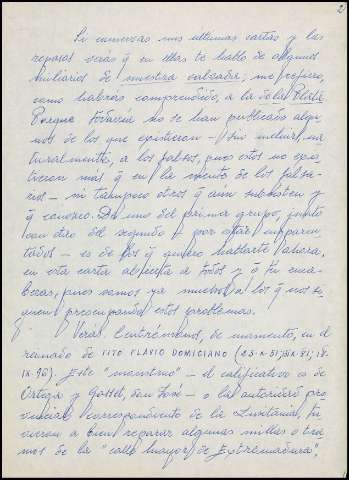 2
Si conservas mis últimas cartas y las
repasas verás q en ellas te hablo de algunos
miliarios de nuestra calzada; me refiero,
como habrás comprendido, a la de la Plata
Porque todavía no se han publicado algu-
nos de los que existieron - sin incluir, na-
turalmente, a los falsos, pues estos no exis-
tieron más q en la mente de los falsa-
rios - ni tampoco otros q aún subsisten y
q conozco. De uno del primer grupo, junto
con otro del segundo y por estar emparen-
tados - es de los q quiero hablarte ahora,
en esta carta abierta a todos y q tu enca-
bezas, pues somos ya muchos a los q nos si-
guen preocupando estos problemas.
Verás. Centrémonos, de momento, en el
reinado de TITO FLAVIO DOMICIANO (
Este "monstruo" - el calificativo es de
Ortega y Gasset, don José - o la autoridad pro-
vincial correspondiente de la Lusitania, tu-
vieron a bien reparar algunas millas o tra-
mos de la "calle mayor de Extremadura",